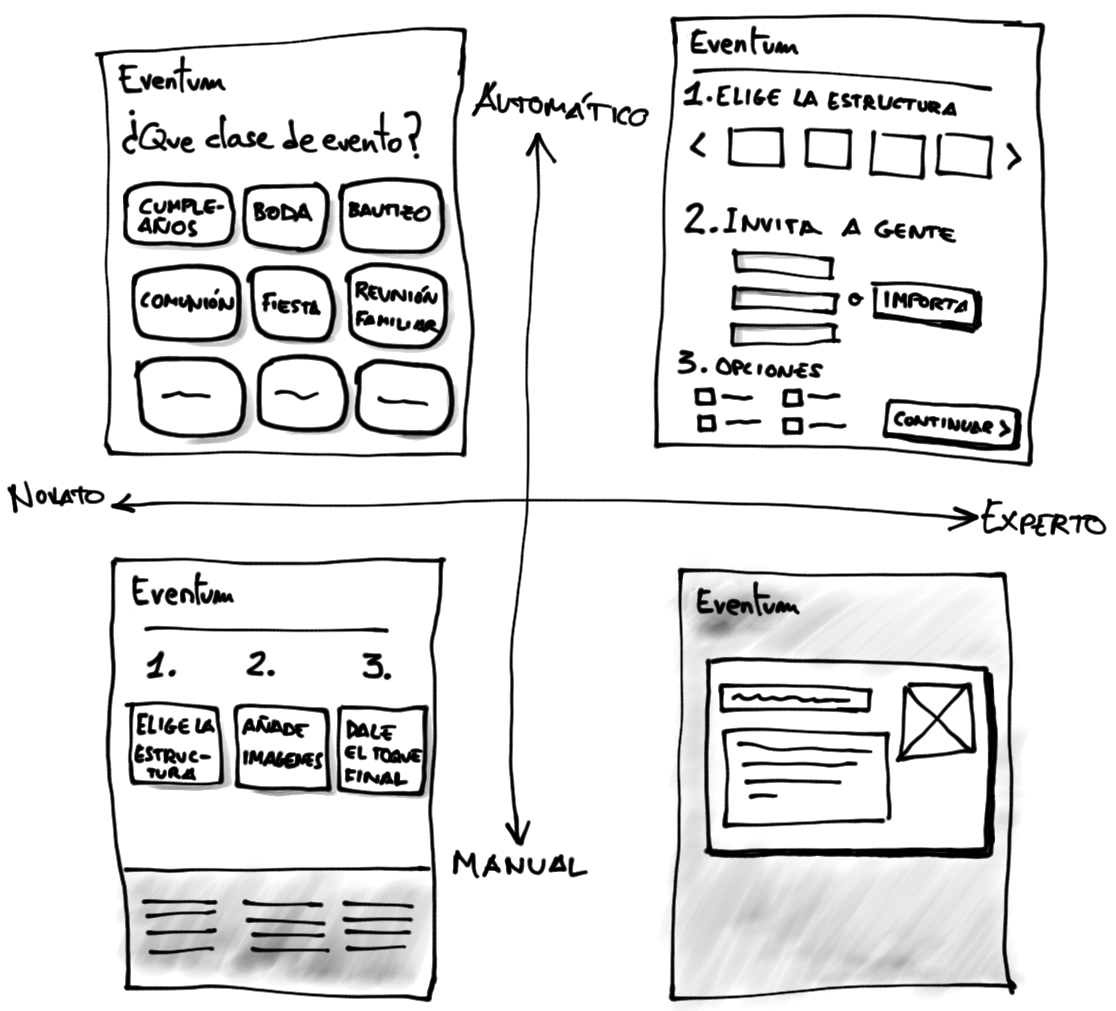 Eventum
¿Que clase de evento?
CUMPLE-
AÑOS
BODA
BAUTIZO
COMUNIÓN
FIESTA
REUNIÓN
FAMILIAR
AUTOMÁTICO
Eventum
1. ELIGE LA ESTRUCTURA
< >
2. INVITA A GENTE
o IMPORTA
3. OPCIONES
CONTINUAR >
NOVATO
EXPERTO
Eventum
1. 2. 3.
ELIGE LA
ESTRUC-
TURA
AÑADE
IMAGENES
DALE
EL TOQUE
FINAL
MANUAL
Eventum